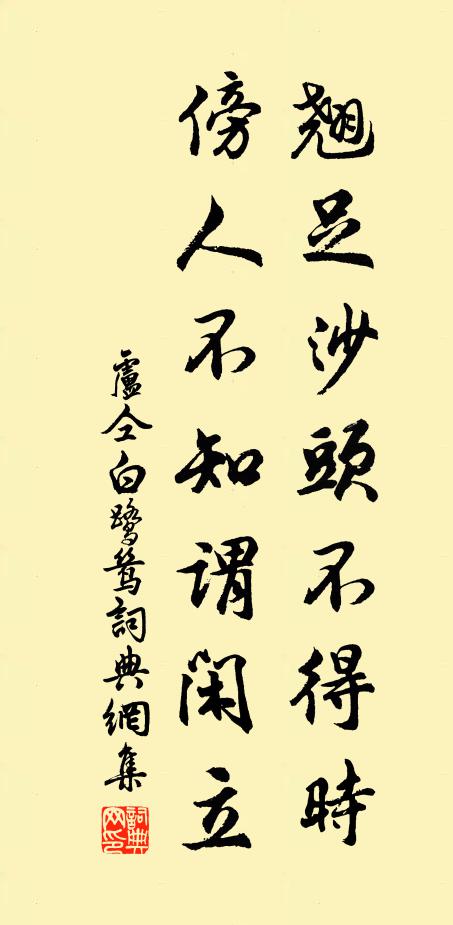 翹足沙頭不得時
傍人不知謂閑立
盧仝白鷺鷥詞典網集
詞典網印